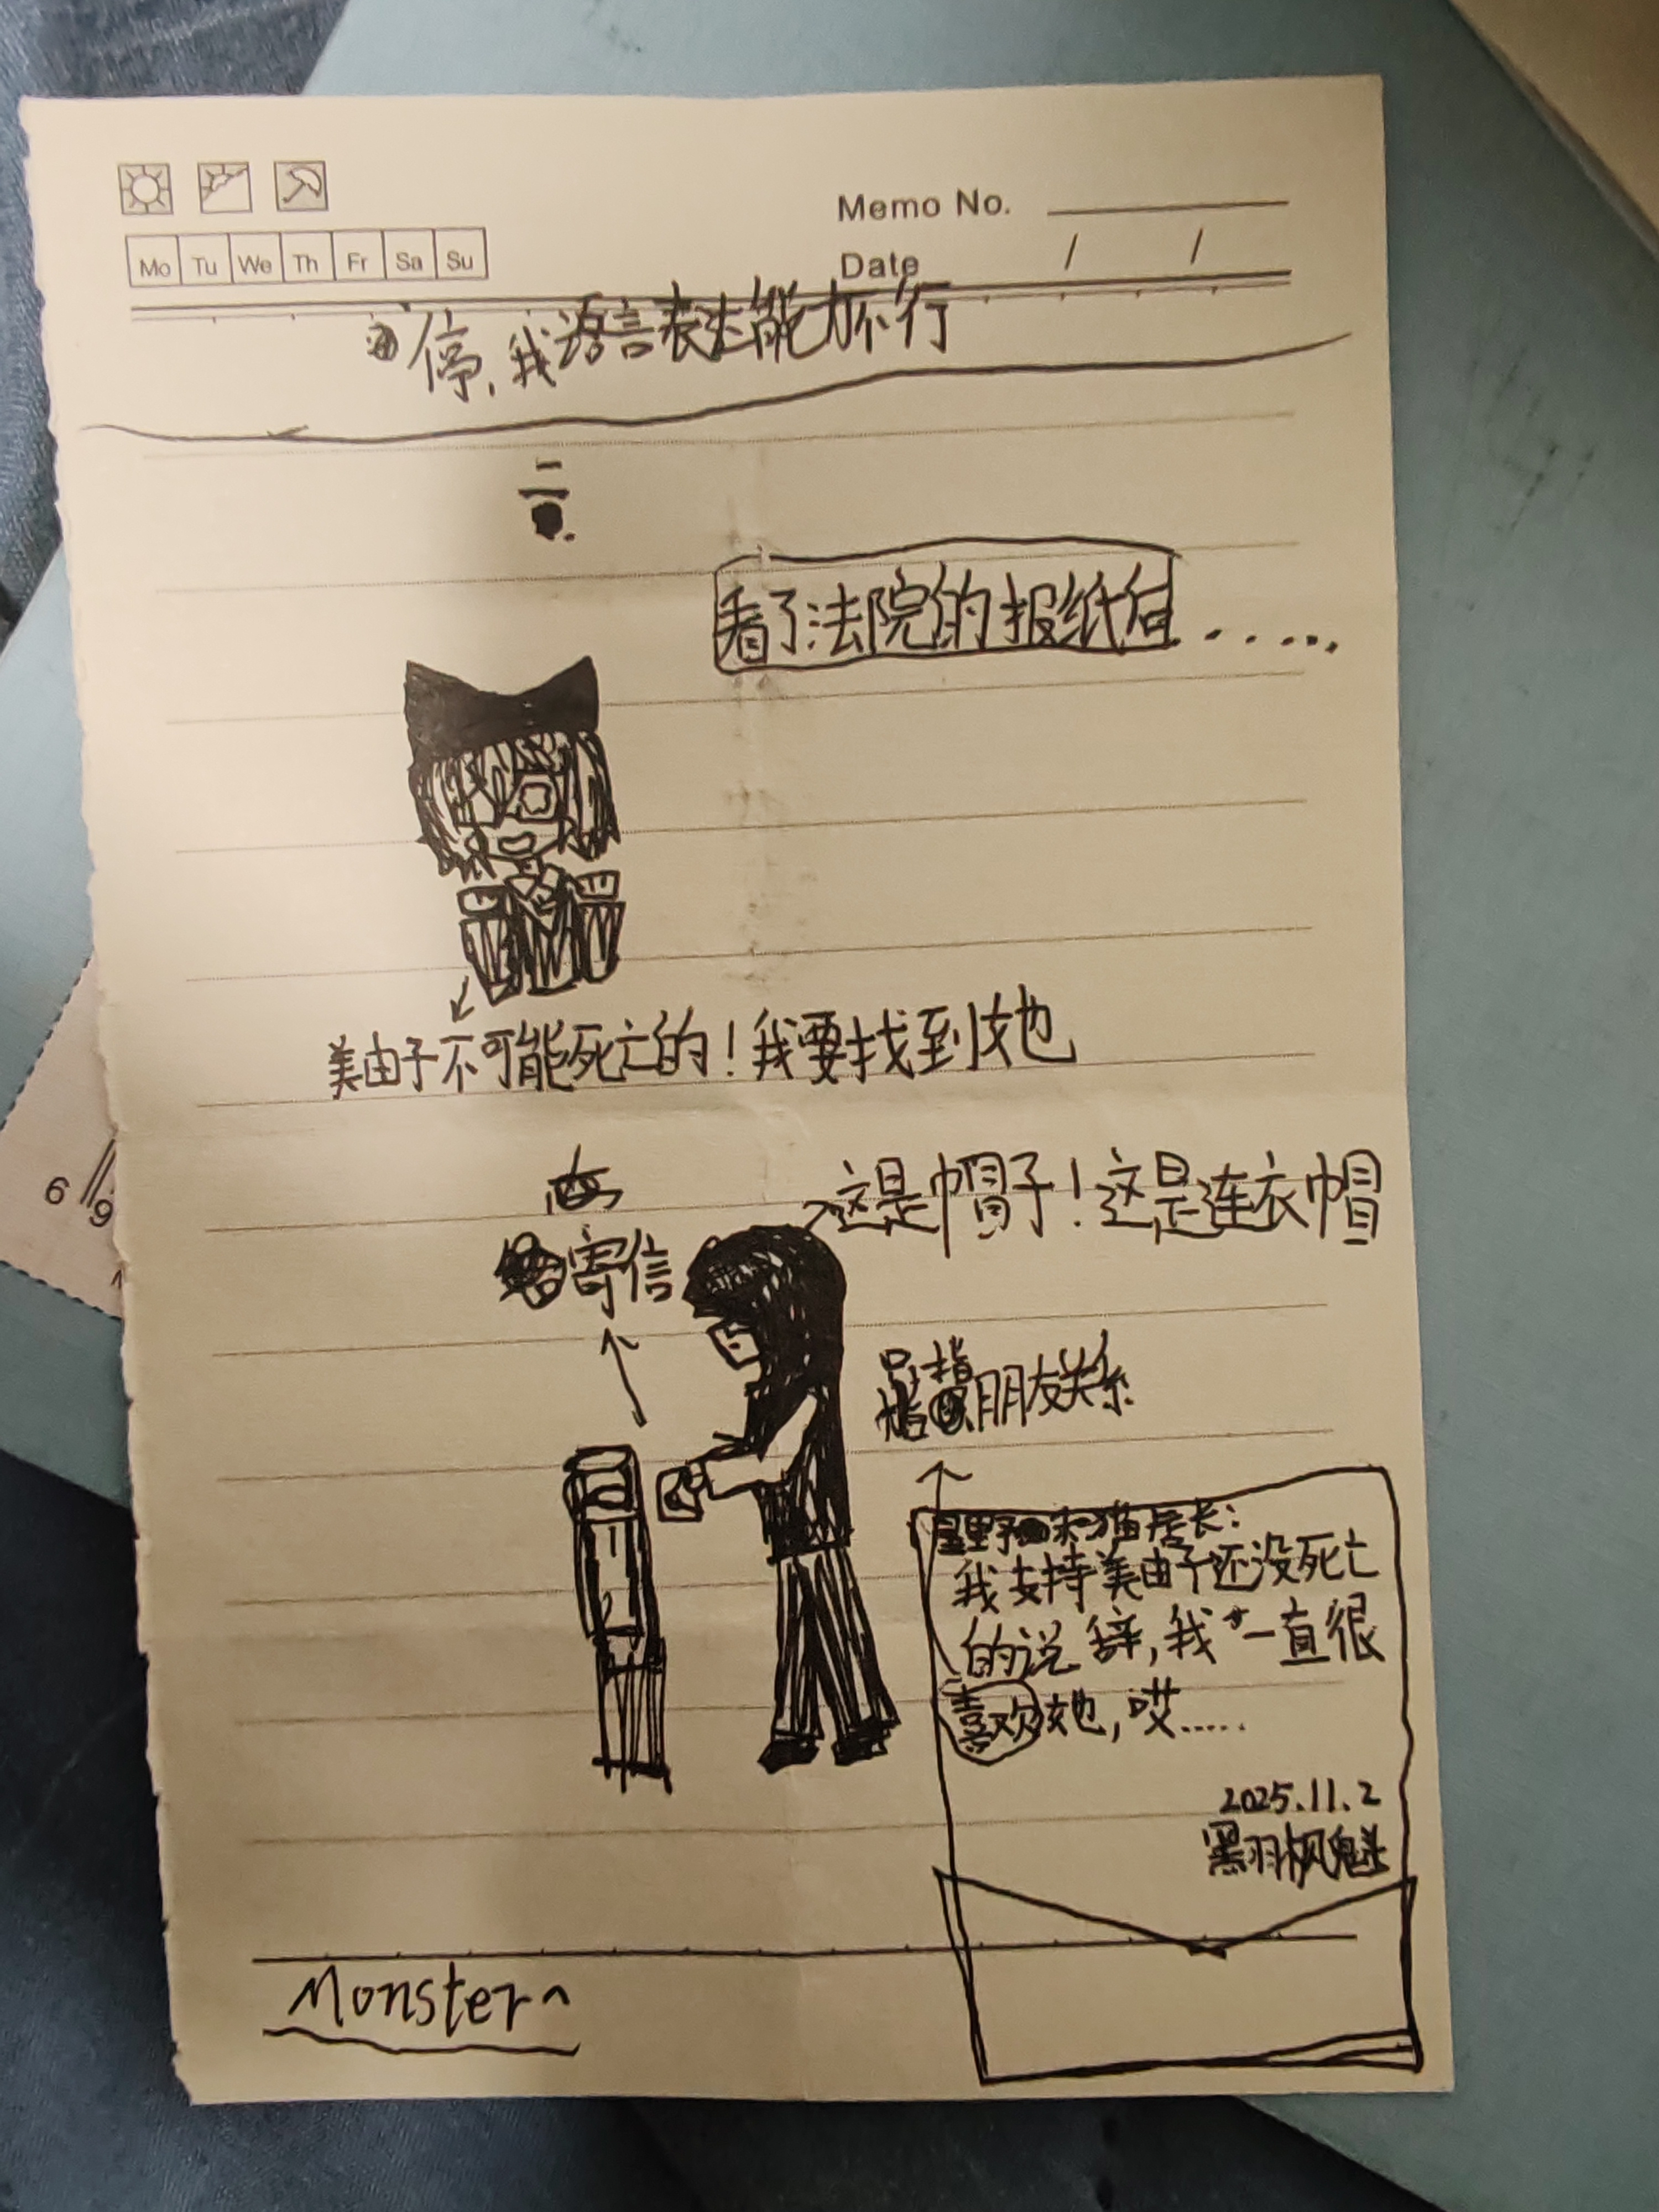 Memo No.
Mo Tu We Th Fr Sa Su
Date / /
停,我语言表达能力不行
二
看了法院的报纸后......
美由子不可能死亡的!我要找到她
这是帽子!这是连衣帽
寄信
只指
朋友关系
星野和猫店长:
我支持美由子还没死亡
的说辞,我一直很
喜欢她,哎.....
2025.11.2
黑羽枫魅
Monster
6
9